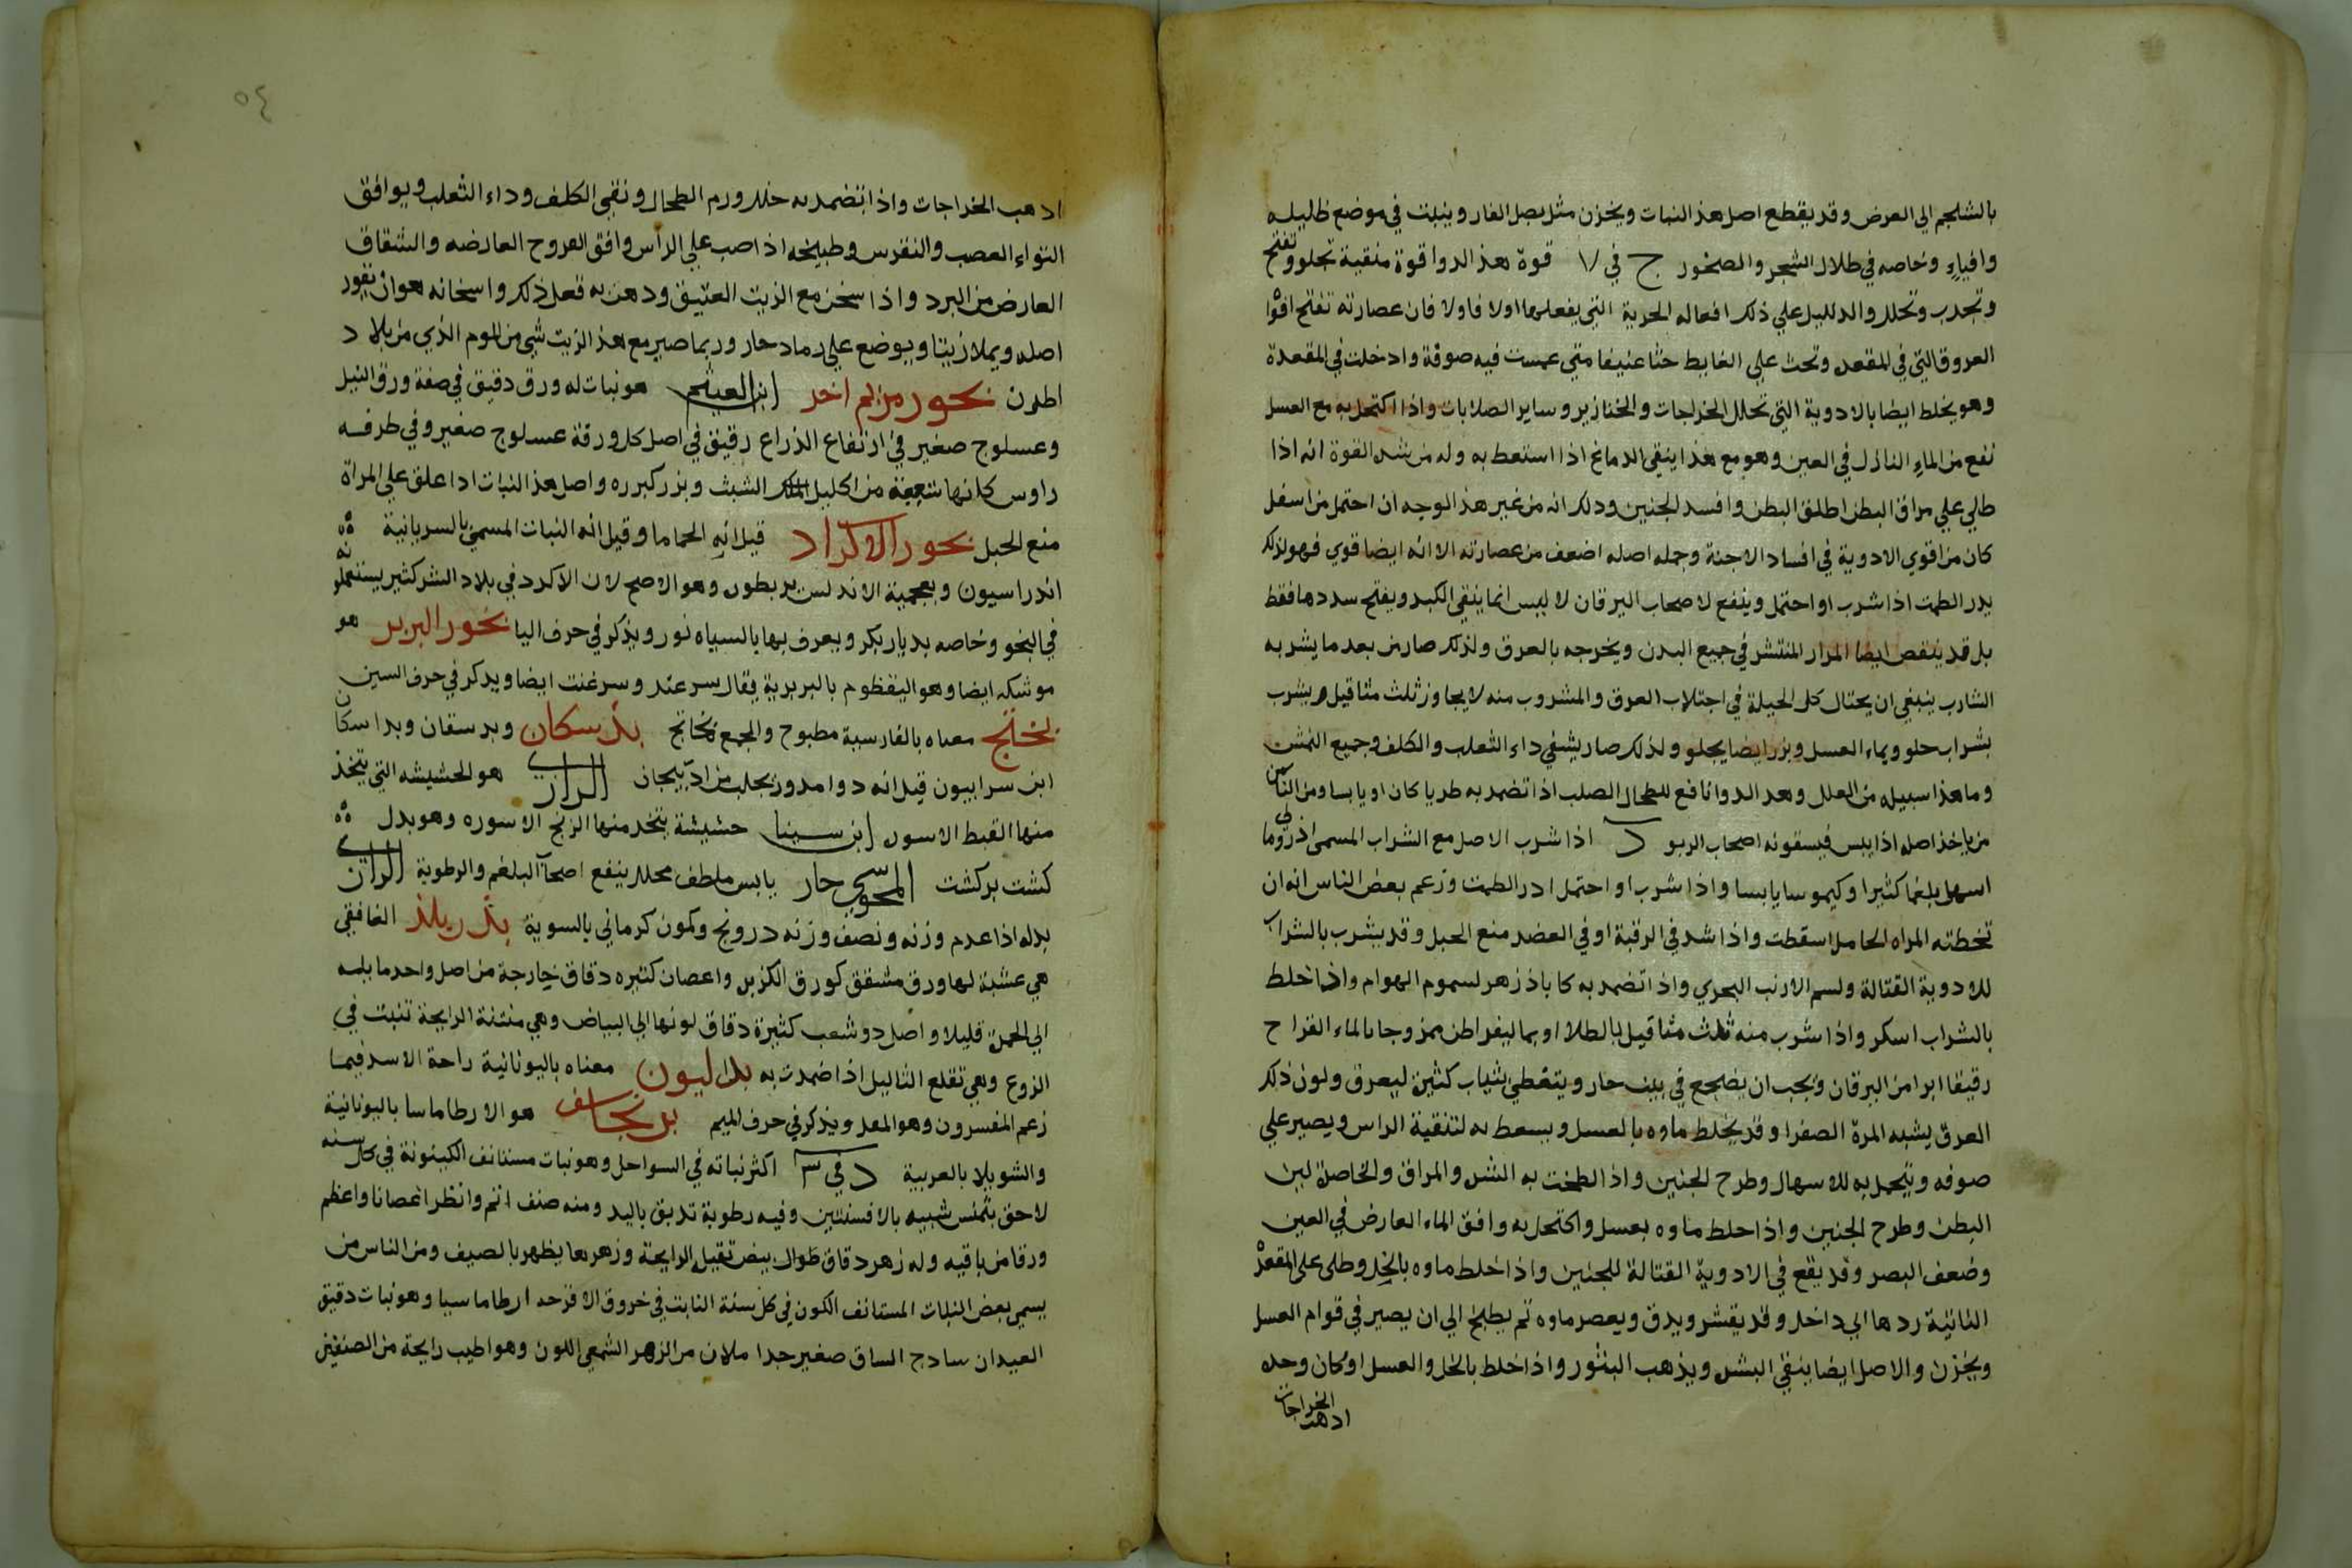 بالشلجم الي العرض وقد يقطع اصل هذا النبات ويخزن مثل بصل الفار وينبت في موضع ظليله
وافياءٍ وخاصه في ظلال الشجر والصخور ج في ٧ قوة هذا الدوا قوة منقبة تجلو وتفتح
وتجدب وتحلل والدليل علي ذلك افعاله الجزية التي يفعلها اولا فاولا فان عصارته تفتح افوا
العروق التي في المقعد وتحث علي الغايط حثا عنيفا متي غمست فيه صوفة وادخلت في المقعدة
وهو يخلط ايضا بالادوية التي تحلل الخراجات والخنازير وساير الصلابات واذا اكتحل به مع العسل
نفع من الماء النازل في العين وهو مع هذا ينقي الدماغ اذا استعط به وله من شدة القوة انه اذا
طلي علي مراق البطن اطلق البطن وافسد الجنين ودلك انه من غير هذا الوجه ان احتمل من اسفل
كان من اقوي الادوية في افساد الاجنة وجمله اصله اضعف من عصارته الا انه ايضا قوي فهو لذلك
يدر الطمث اذا شرب او احتمل وينفع لاصحاب اليرقان لا ليس انما ينقي الكبد ويفتح سددها فقط
بل قد ينفص ايضا المرار المنتشر في جميع البدن ويخرجه بالعرق ولذلك صار من بعد ما يشربه
الشارب ينبغي ان يحتال كل الحيلة في اجتلاب العرق والمشروب منه لا يجاوز ثلث مثاقيل ويشرب
بشراب حلو وبماء العسل وبزر ايضا يجلو ولذلك صار يشفي داء الثعلب والكلف وجميع النمش
وما هذا سبيله من العلل وهد الدوا نافع للطحال الصلب اذا تضمد به طريا كان او يابسا ومن الناس
من ياخذ اصله اذا يبس فيسقونه اصحاب الربو د اذا شرب الاصل مع الشراب المسمي اذرومالي
اسهل بلغما كثيرا وكيموسا يابسا واذا شرب او احتمل ادر الطمث وزعم بعض الناس انه ان
تخطته المراه الحامل اسقطت واذا شد في الرقبة او في العضد منع الحبل وقد يشرب بالشراب
للادوية القتالة ولسم الارنب البحري واذا تضمد به كا باذزهر لسموم الهوام واذا خلط
بالشراب اسكر واذا شرب منه ثلث مثاقيل بالطلا او بماليقراطن ممزوجا بالماء القراح
رقيقا ابرا من اليرقان ويجب ان يضجع في بيت حار ويتغطي بثياب كثيره ليعرق ولون ذلك
العرق يشبه المرة الصفرا وقد يخلط ماوه بالعسل ويسعط به لتنقية الراس ويصير علي
صوفه ويتحمل به للاسهال وطرح الجنين واذا لطخت به السره والمراق والخاصرة لين
البطن وطرح الجنين واذا خلط ماوه بعسل واكتحل به وافق الماء العارض في العين
وضعف البصر وقد يقع في الادوية القتالة للجنين واذا خلط ماوه بالخل وطلي علي المقعدة
الناتية ردها الي داخل وقد يقشر ويدق ويعصر ماوه ثم يطبخ الي ان يصير في قوام العسل
ويخزن والاصل ايضا ينقي البشره ويذهب البثور واذا خلط بالخل والعسل او كان وحده
اذهب الخراجات
٥٤
اذهب الخراجات واذا تضمد به حلل ورم الطحال ونقي الكلف وداء الثعلب ويوافق
التواء العصب والنقرس وطبيخه اذا صب علي الراس وافق القروح العارضه والشقاق
العارض من البرد واذا سخن مع الزيت العتيق ودهن به فعل ذلك واسخانه هو ان يقور
اصله ويملا زيتا ويوضع علي رماد حار وربما صير مع هذا الزيت شي من الموم الذي من بلاد
اطلون بخور مريم اخر ابن الهيثم هو نبات له ورق دقيق في صفة ورق النيل
وعسلوج صغير في ارتفاع الذراع رقيق في اصل كل ورقة عسلوج صغير وفي طرفه
راوس كانها شعبة من اكليل الشبث وبزر كبزره واصل هذا النبات اذا علق علي المراة
منع الحبل بخور الاكراد قيل انه الحماما وقيل انه النبات المسمي بالسريانية
اندراسيون وبعجمية الاندلس يربطوره وهو الاصح لان الاكرد في بلاد الشر كثير يستعملونه
في البخو وخاصه بديار بكر ويعرف بها بالسياه نور ويذكر في حرف اليا بخور البربر هو
موشكه ايضا وهو اليقظوم بالبربرية يقال سرعند وسرغنت ايضا ويدكر في حرف السين
بختج معناه بالفارسية مطبوخ والجمع بخاتج بدسكان وبدسقان وبداسكان
ابن سرابيون قيل انه دوا مدور يجلب من اذربيجان الرازي هو الحشيشه التي يتخذ
منها القبط الاسون ابن سينا حشيشة يتخد منها الزنج الاسوره وهو بدل
كشت بركشت المسيح حار يابس ملطف محلل ينفع اصحاب البلغم والرطوبة الرازي
بدله اذا عدم وزنه ونصف وزنه درونج وكمون كرماني بالسوية الغافقي
هي عشبة لها ورق مشقق كورق الكزبره واعصان كثيره دقاق خارجة من اصل واحد مايله
الي الحمرة قليلا واصل دو شعب كثيرة دقاق لونها الي البياض وهي منتنة الرايحة تنبت في
الزوع وهي تقلع الثاليل اذا ضمدت به بداليون معناه باليونانية راحة الاسد فيما
زعم المفسرون وهو المعد ويذكر في حرف الميم برنجاسف هو الارطاماسا باليونانية
والشويلا بالعربية د في ٣ اكثر نباته في السواحل وهو نبات مستانف الكينونة في كل سنه
لاحق بتمنس شبيه بالافسنتين وفيه رطوبة تدبق باليد ومنه صنف انعم وانظر اغصانا واعظم
ورقا من باقيه وله زهر دقاق طوال بيض ثقيل الرايحة وزهرها يظهر بالصيف ومن الناس من
يسمي بعض النبات المستانف الكون في كل سنة النابت في خروق الاقرحد ارطاماسيا وهو نبات دقيق
العيدان سادج الساق صغير جدا ملان من الزهر الشمعي اللون وهو اطيب رايحة من الصنفين